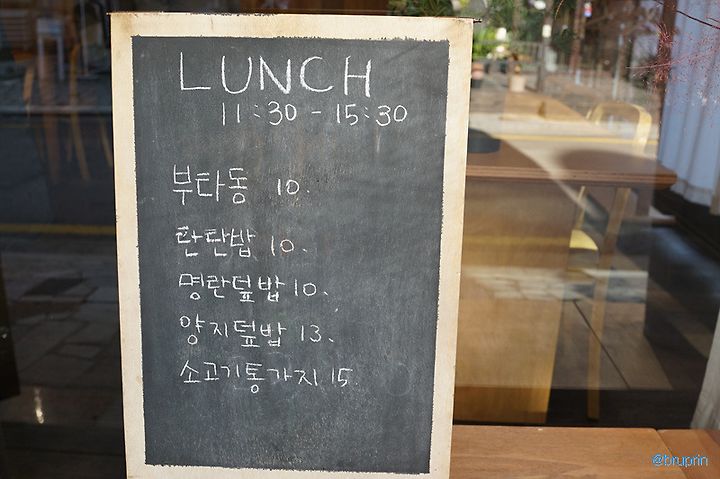 LUNCH
11:30 - 15:30
부타동 10.
탄탄밥 10.
명란덮밥 10.
양지덮밥 13.
소고기통가지 15.
@bruprin